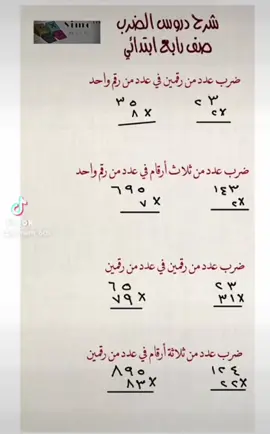 شرح دروس الضرب
صف رابع ابتدائي
ضرب عدد من رقمين في عدد من رقم واحد
٢٣ ٣٥
٢x ٨x
ضرب عدد من ثلاث أرقام في عدد من رقم واحد
١٤٣ ٦٩٥
٢x ٧x
ضرب عدد من رقمين في عدد من رقمين
٢٣ ٦٥
٣١x ٧٩x
ضرب عدد من ثلاثة أرقام في عدد من رقمين
١٢٤ ٨٩٥
٢٢x ٨٣x